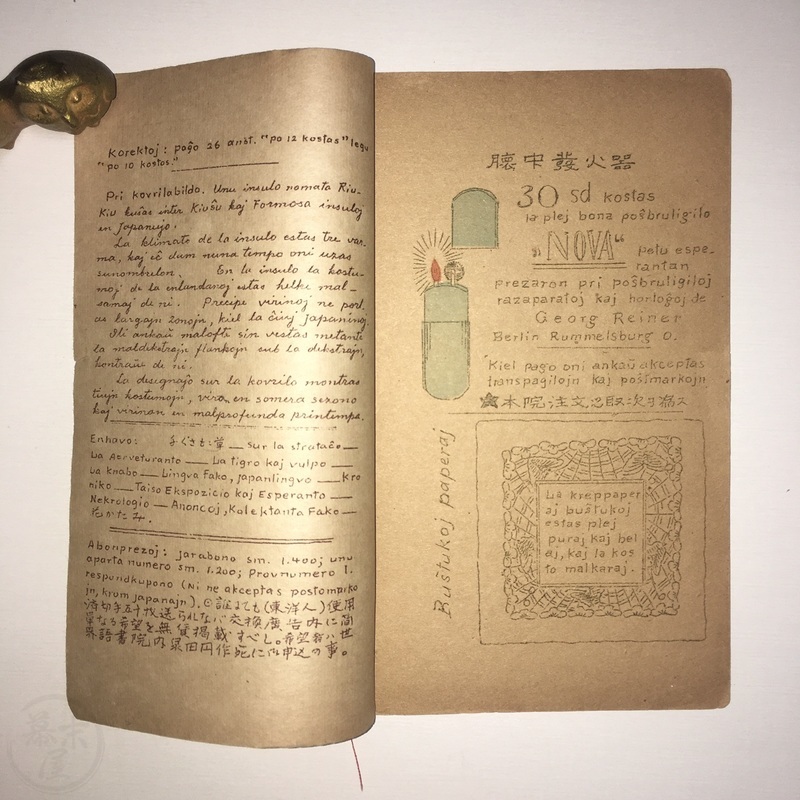 Korektoj: paĝo 26 anst. "po 12 kostas" legu
"po 10 kostas."
Pri kovrilabildo. Unu insulo nomata Riu-
Kiu kuŝas inter Kiuŝu kaj Formosa insuloj
en Japanujo.
La klimato de la insulo estas tre var-
ma, kaj eĉ dum nuna tempo oni uzas
sunombrelon. En la insulo la kostu-
moj de la enlandanoj estas mal-
samaj de ni. Precipe virinoj ne port-
as larĝajn zonojn, kiel la ĉiuj japaninoj.
Ili ankaŭ malofte sin vestas metante
la maldekstrajn flankojn sub la dekstrajn,
kontraŭe de ni.
La desegnaĵo sur la kovrilo montras
tiujn kostumojn, viro, en somera sezono
kaj virinon en malprofunda printempo.
Enhavo: Sur la strataĉo
La Aerveturanto La tigro kaj vulpo
La knabo Lingva Fako, Japanlingvo Kro
niko Taiso Ekspozicio kaj Esperanto
Nekrologio Anoncoj, Kolektanta Fako
Abonprezoj: jarabono sm. 1.400; unu
aparta numero sm. 1.200; Provnumero 1.
respondkupono (Ni ne akceptas postompiko
jn, krom japanajn). ◎誰まても(東洋人)使用
濟切手五十枚送られなば交換廣告内に簡
單なる希望を無償掲載すべし。希望者は世
界語書院内
懐中發火器
30 sd kostas
la plej bona poŝbruligilo
„NOVA“ petu espe-
rantan
prezaron pri poŝbruligiloj
razaparatoj kaj horloĝoj de
Georg Reiner
Berlin Rummelsburg O.
Kiel pago oni ankaŭ akceptas
transpagilojn kaj poŝtmarkojn
★本院注文取次
Buŝtukoj paperaj
La kreppaper
aj buŝtukoj
estas plej
puraj kaj bel
aj, kaj la kos
to malkara j.